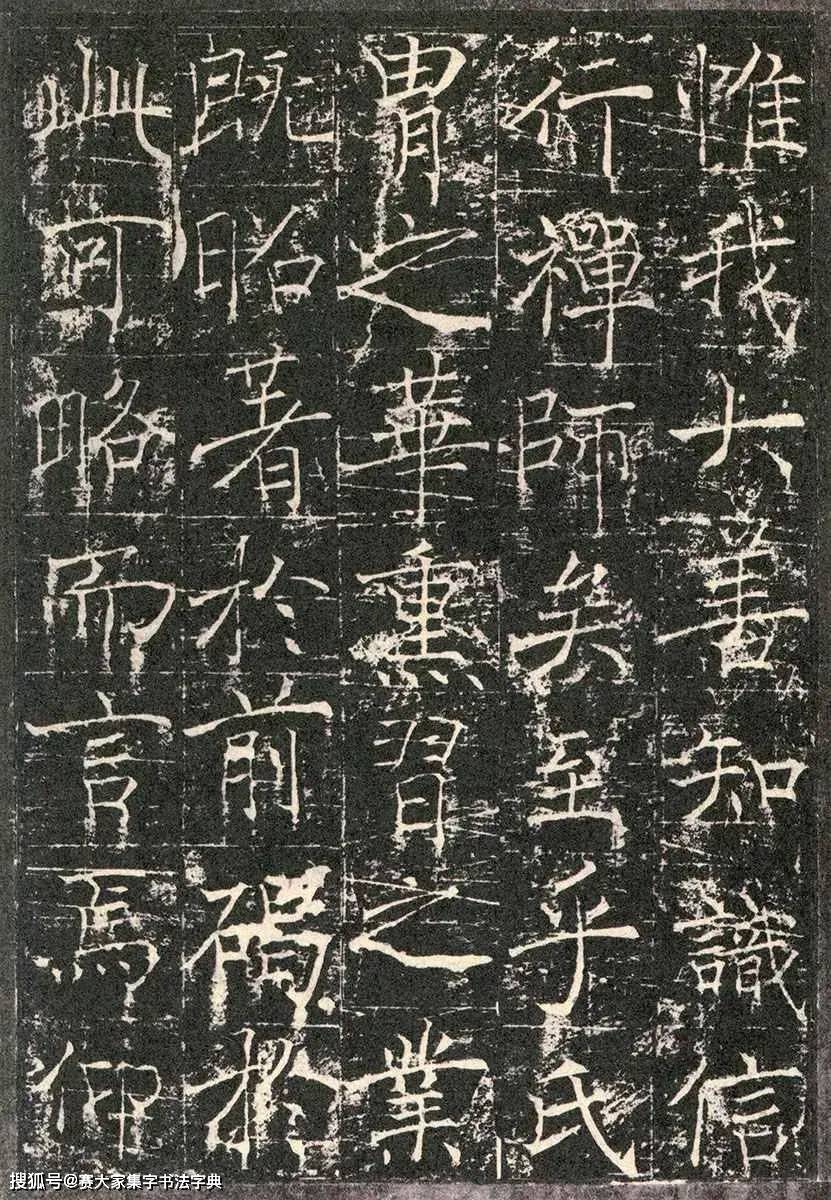 惟我大善知識信
行禪師矣至乎氏
胄之華熏習之業
既昭著於前碣於
此可略而言焉仰
搜狐号@赛大家集字书法字典